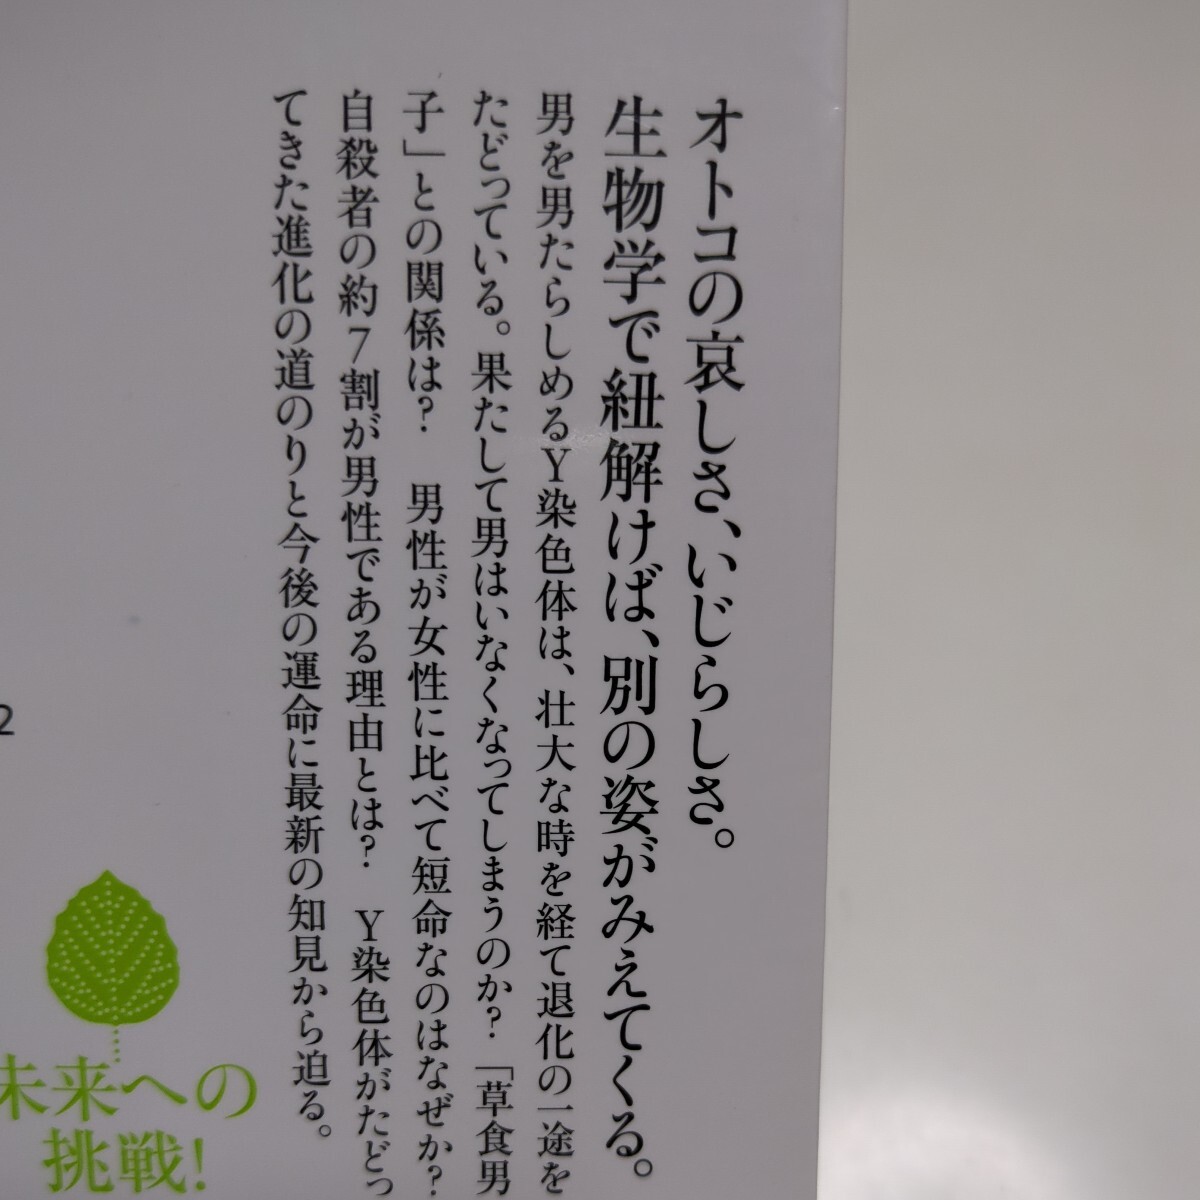 オトコの哀しさ、いじらしさ。
生物学で紐解けば、別の姿がみえてくる。
男を男たらしめるY染色体は、壮大な時を経て退化の一途を
たどっている。果たして男はいなくなってしまうのか?「草食男
子」との関係は? 男性が女性に比べて短命なのはなぜか?
自殺者の約7割が男性である理由とは? Y染色体がたどっ
てきた進化の道のりと今後の運命に最新の知見から迫る。
2
未来への
挑戦!